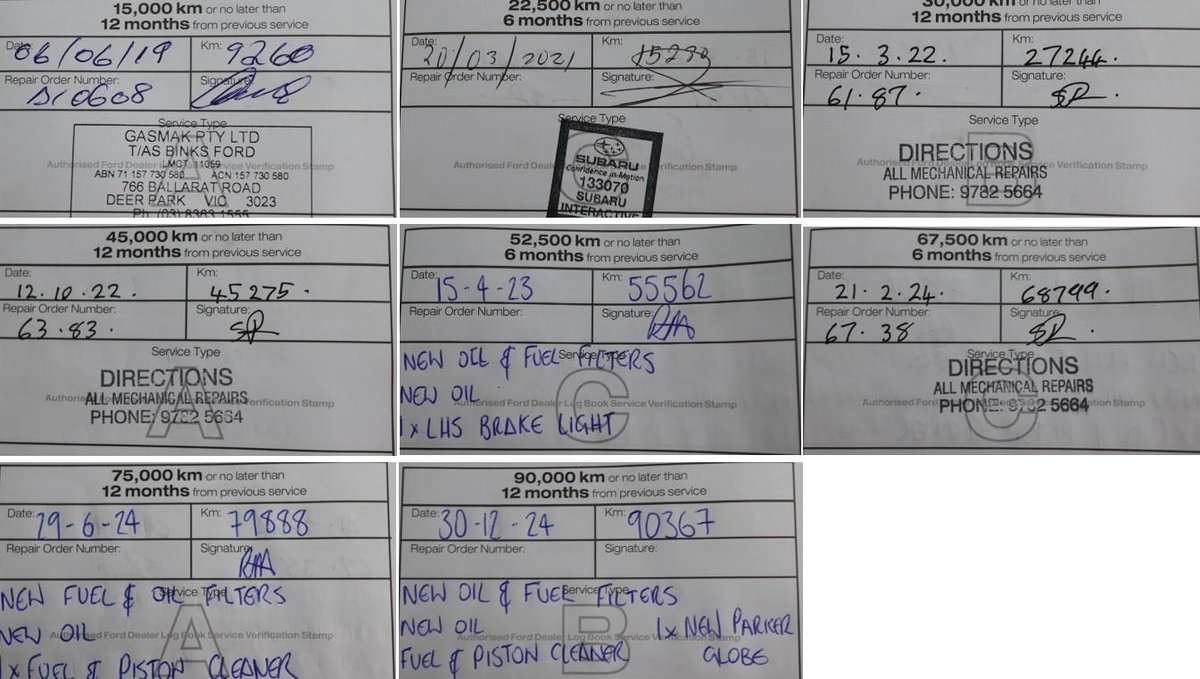 15,000 km or no later than
12 months from previous service
Date: 06/06/19 Km: 9260
Repair Order Number: Signature:
Service Type
GASMAK PTY LTD
T/AS BINKS FORD
LMCT 11059
Authorised Ford Dealer Log Book Service Verification Stamp
ABN 71 157 730 580 ACN 157 730 580
766 BALLARAT ROAD
DEER PARK VIC 3023
Ph (03) 8363 1555
22,500 km or no later than
6 months from previous service
Date: 20/03/2021 Km:
Repair Order Number: Signature:
Service Type
SUBARU
Confidence in Motion
Authorised Ford Dealer Verification Stamp
133070
SUBARU
INTERACTIVE
30,000 km or no later than
12 months from previous service
Date: 15.3.22. Km: 27244.
Repair Order Number: 61.87. Signature:
Service Type
B
DIRECTIONS
Authorised Ford Dealer Log Book Service Verification Stamp
ALL MECHANICAL REPAIRS
PHONE: 9782 5664
45,000 km or no later than
12 months from previous service
Date: 12.10.22. Km: 45275.
Repair Order Number: 63.83. Signature:
Service Type
A
DIRECTIONS
Authorised Verification Stamp
ALL MECHANICAL REPAIRS
PHONE: 9782 5664
52,500 km or no later than
6 months from previous service
Date: 15-4-23 Km: 55562
Repair Order Number: Signature:
Service Type
NEW OIL & FUEL FILTERS
NEW OIL
C
Authorised Ford Dealer Log Book Service Verification Stamp
1x LHS BRAKE LIGHT
67,500 km or no later than
6 months from previous service
Date: 21.2.24. Km: 68799.
Repair Order Number: 67.38 Signature:
Service Type
C
DIRECTIONS
ALL MECHANICAL REPAIRS
Authorised Ford Verification Stamp
PHONE: 9782 5664
75,000 km or no later than
12 months from previous service
Date: 29-6-24 Km: 79888
Repair Order Number: Signature:
Service Type
NEW FUEL & OIL FILTERS
A
NEW OIL
Authorised Ford Dealer Log Book Service Verification Stamp
1x FUEL & PISTON CLEANER
90,000 km or no later than
12 months from previous service
Date: 30-12-24 Km: 90367
Repair Order Number: Signature:
Service Type
NEW OIL & FUEL FILTERS
B
NEW OIL 1x NEW PARKER
Authorised Ford Dealer Log Book Service Verification Stamp
FUEL & PISTON CLEANER GLOBE